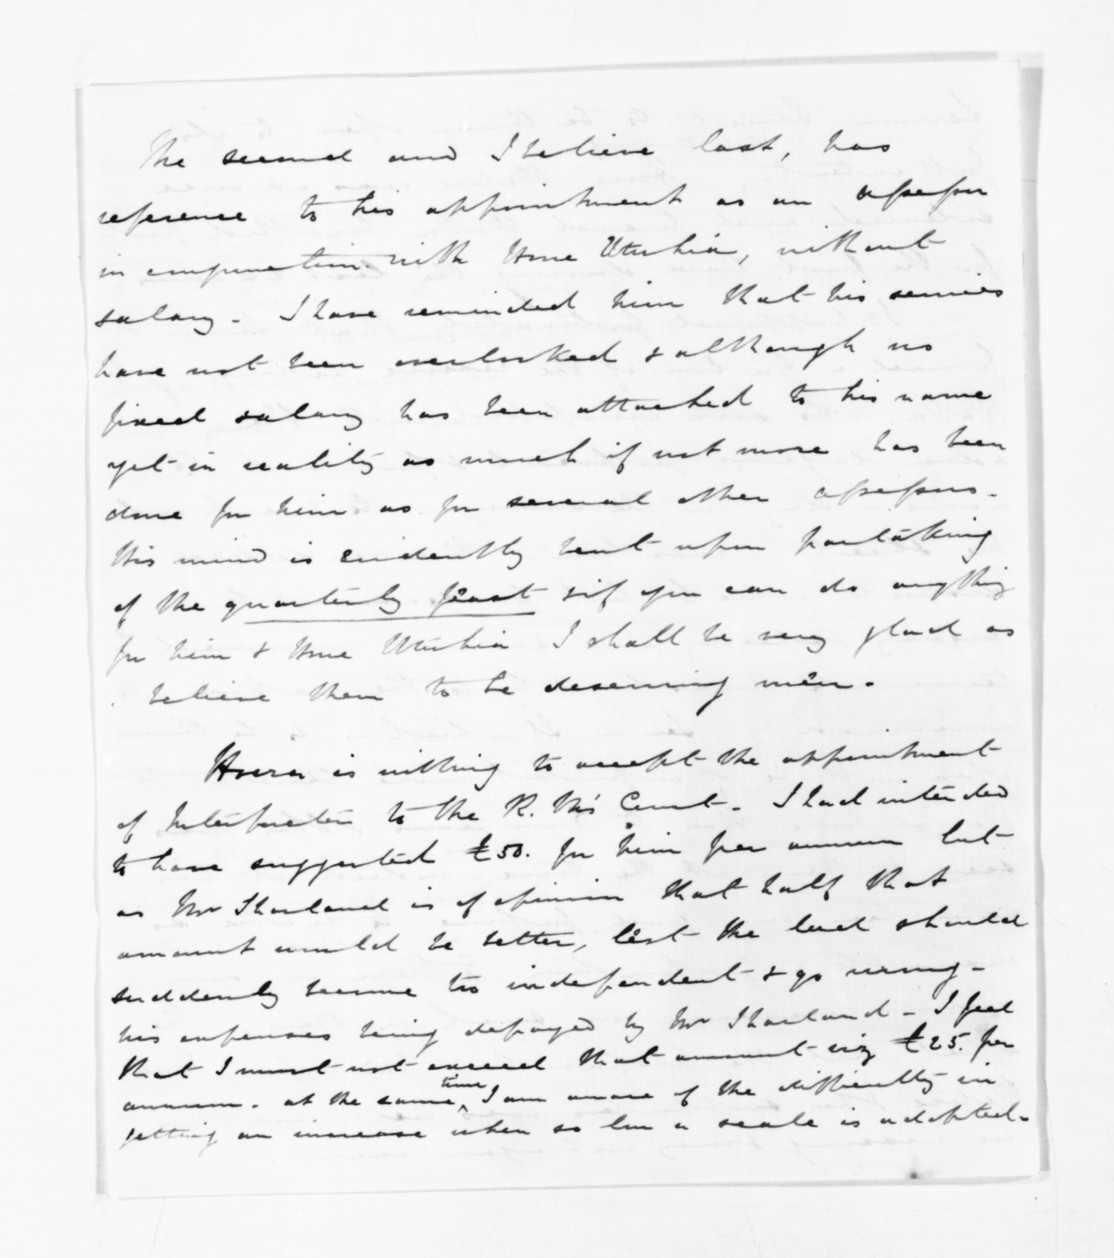 The second and I believe last, has
reference to his appointment as an assessor
in conjunction with Hone Utuhia, without
salary - I have reminded him that his services
have not been overlooked & although no
fixed salary has been attached to his name
yet in reality as much if not more has been
done for him as for several other assessors -
His mind is evidently bent upon partaking
of the quarterly feast & if you can do anything
for him & Hone Utuhia I shall be very glad as
I believe them to be deserving men.
is willing to accept the appointment
of Interpreter to the R. M's Court - I had intended
to have suggested £50. for him per annum but
as Mr is of opinion that half that
amount would be better, lest the lad should
suddenly become too independent & go wrong -
his expenses being defrayed by Mr - I feel
that I must not exceed that amount viz £25. per
annum. at the same time I am aware of the difficulty in
getting an increase when so low a scale is adopted -